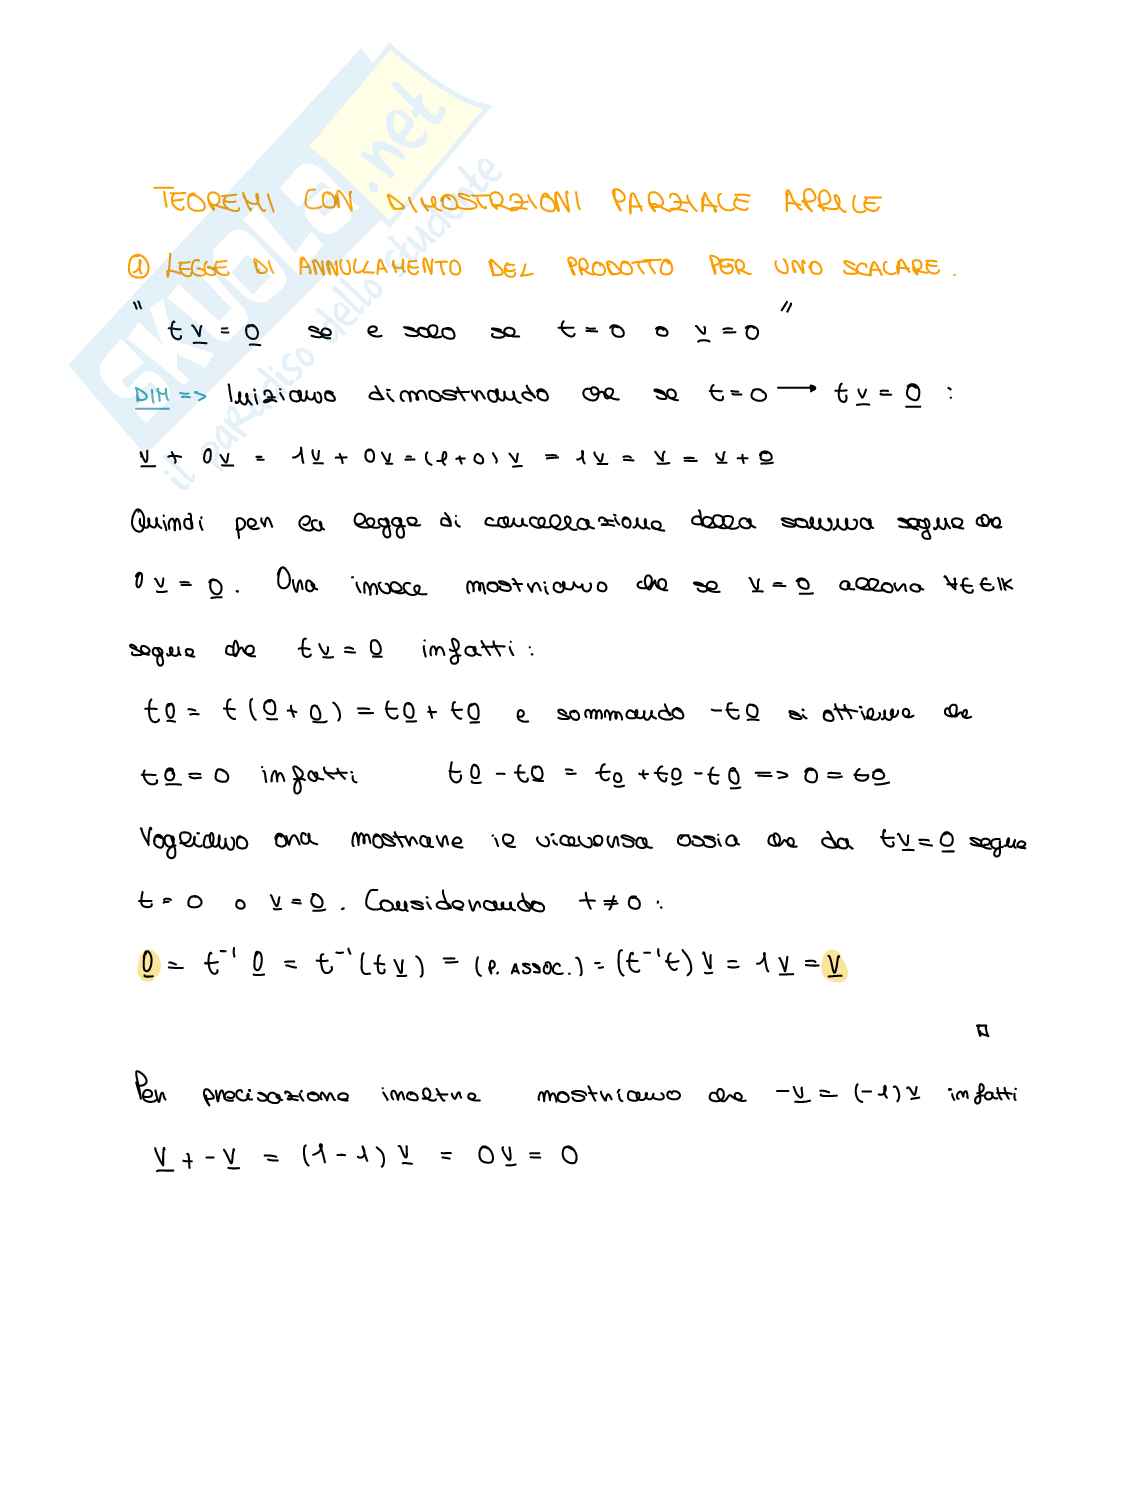 SKUOLA.net
il paradiso dello studente
TEOREMI CON DIMOSTRZIONI PARZIALE APRILE
① LEGGE DI ANNULLAMENTO DEL PRODOTTO PER UNO SCALARE.
" t v̲ = 0̲ se e solo se t = 0 o v̲ = 0 "
DIM => Iniziamo dimostrando che se t = 0 ⟶ t v̲ = 0̲ :
v̲ + 0v̲ = 1v̲ + 0v̲ = (1+0) v̲ = 1v̲ = v̲ = v̲ + 0̲
Quindi per la legge di cancellazione della somma segue che
0 v̲ = 0̲ . Ora invece mostriamo che se v̲ = 0̲ allora ∀t∈𝕂
segue che t v̲ = 0̲ infatti :
t0̲ = t (0̲ + 0̲) = t0̲ + t0̲ e sommando -t0̲ si ottiene che
t0̲ = 0 infatti t0̲ - t0̲ = t0̲ + t0̲ - t0̲ => 0 = t0̲
Vogliamo ora mostrare il viceversa ossia che da t v̲ = 0̲ segue
t = 0 o v̲ = 0̲ . Considerando t ≠ 0 :
0̲ = t⁻¹ 0̲ = t⁻¹ (t v̲) = (P. ASSOC.) = (t⁻¹t) v̲ = 1 v̲ = v̲
□
Per precisazione inoltre mostriamo che -v̲ = (-1) v̲ infatti
v̲ + - v̲ = (1 - 1) v̲ = 0 v̲ = 0